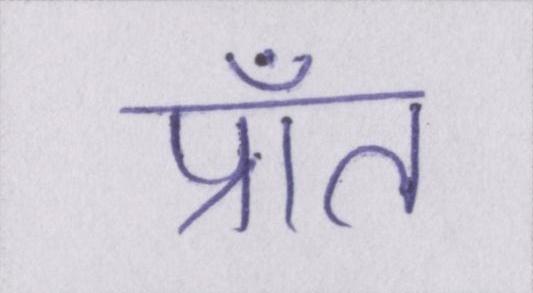 प्राँत